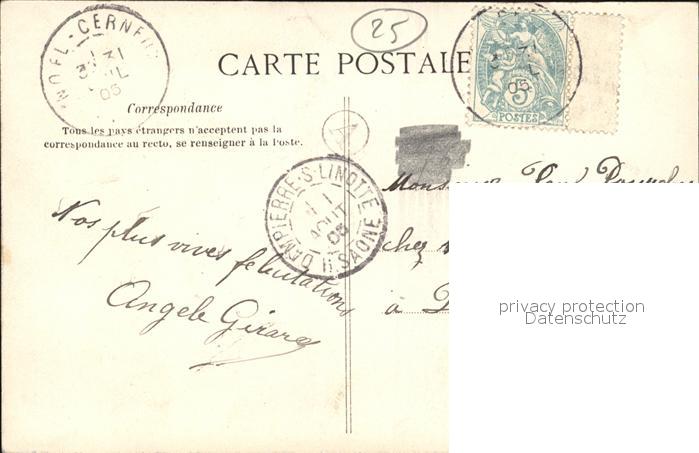 25
NOEL-CERNEUX
31
JUIL
05
CARTE POSTALE
5
POSTES
31
05
Correspondance
Tous les pays étrangers n'acceptent pas la
correspondance au recto, se renseigner à la Poste.
A
DAMPIERRE-S-LINOTTE
1
AOUT
05
H. SAONE
Nos plus vives felicitations
Angele Girard
Monsieur Paul
chez
à
privacy protection
Datenschutz